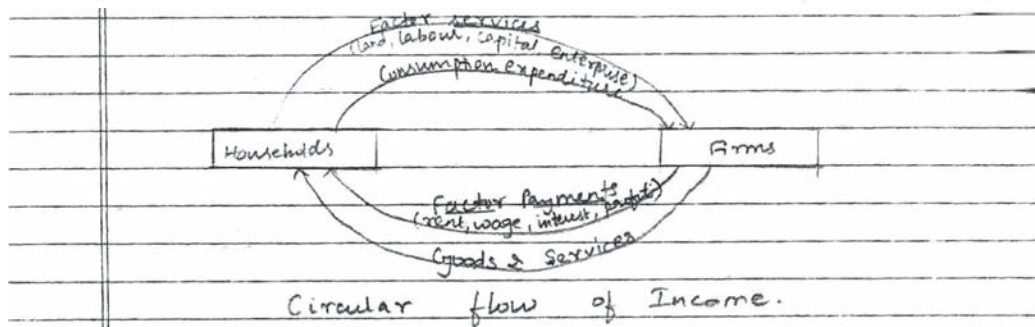 Factor services
(land, labour, capital enterprise)
Consumption expenditure
Households
Firms
Factor Payments
(rent, wage, interest, profit)
Goods & Services
Circular flow of Income.